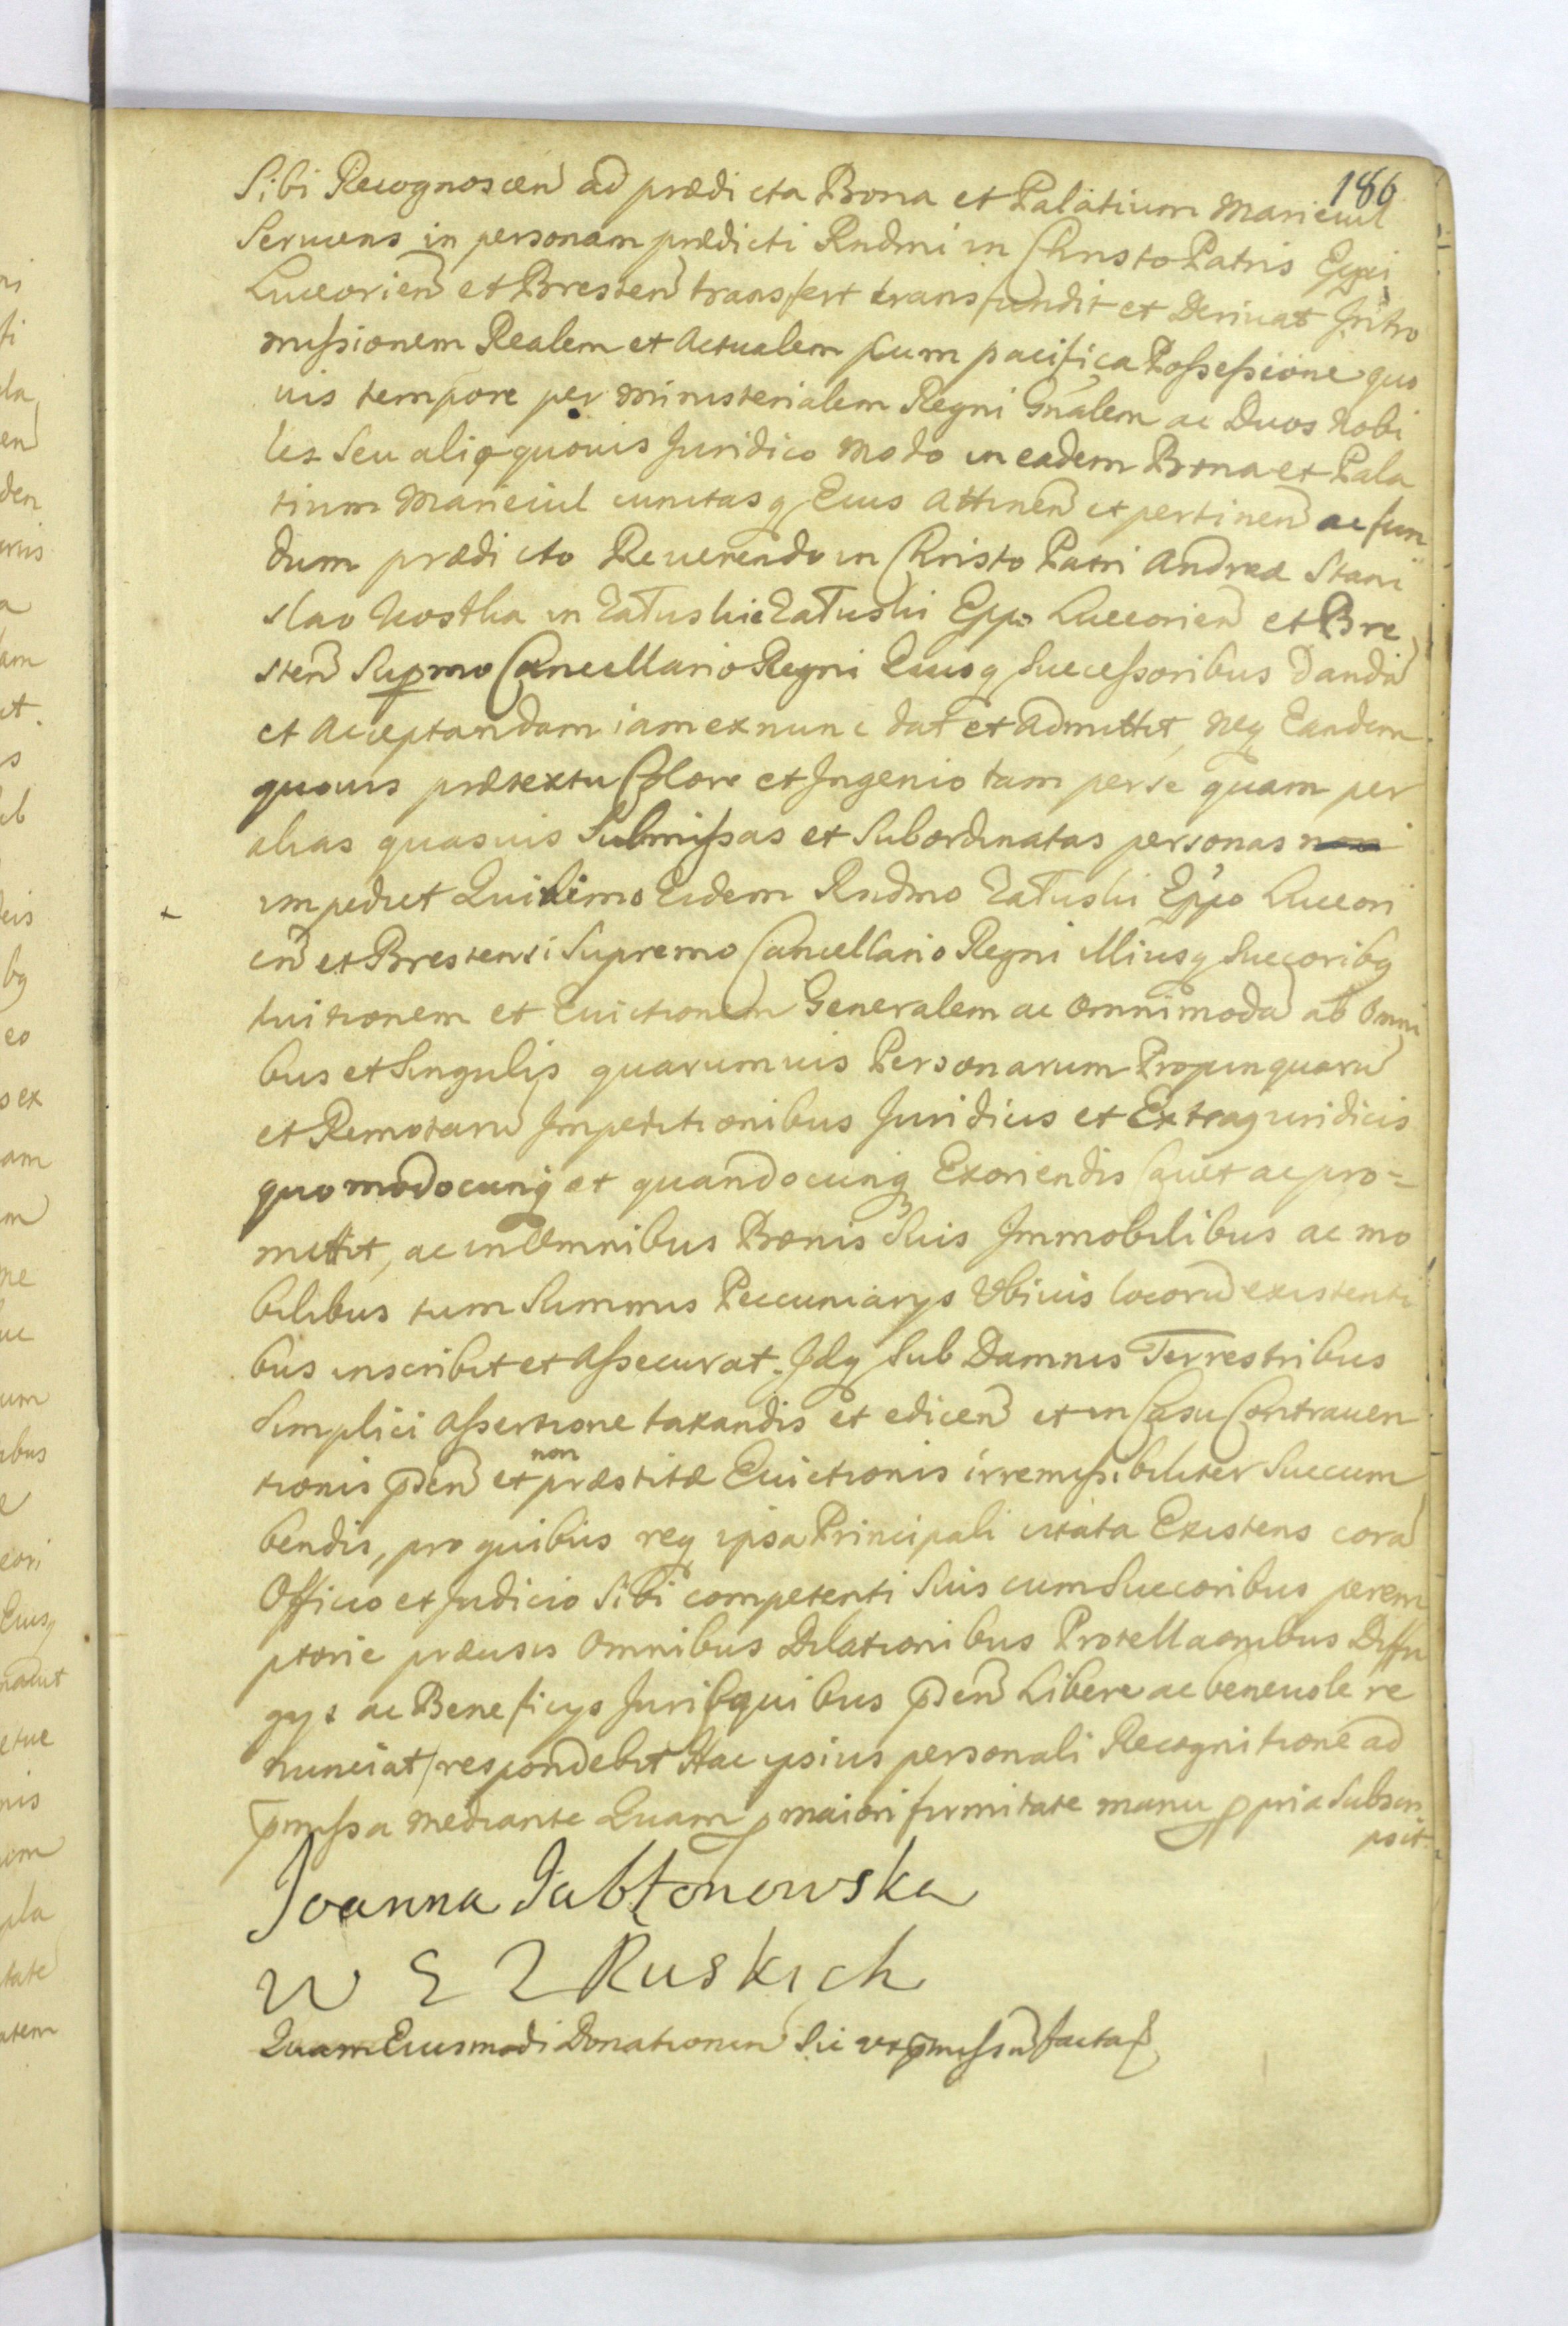 186
Sibi Recognoscen ad prædicta Bona et Palatium Marievil
Seruiens in personam prædicti Rndmi in Christo Patris Eppi
Luceorien et Bresten transfert transfundit et Deriuat Intro
missionem Realem et Actualem cum pacifica Possessione quo
uis tempore per Ministerialem Regni Gnalem ac Duos Nobi
les Seu alio quouis Juridico modo in eadem Bona et Pala
tium Marievil cunctasq Eius Attinen et pertinen ac fun
dum prædicto Reuerendo in Christo Patri Andreæ Stani
slao Kostka in Załuskie Załuski Eppo Luceorien et Bre
sten Supmo Cancellario Regni Eiusq Successoribus Dandā
et Acceptandam iam ex nunc dat et Admittit, neq Eandem
quouis prætextu Colore et Ingenio tam per se quam per
alias quasuis Submissas et Subordinatas personas
impediet Quinimo Eidem Rndmo Załuski Eppo Luceori
en et Brestensi Supremo Cancellario Regni Illiusq Succoribq
tuitionem et Euictionem Generalem ac omnimodā ab Omni
bus et Singulis quarumuis Personarum Propinquarū
et Remotarū Impeditionibus Juridicis et Extrajuridicis
quomodocunq et quandocunq Exoriendis Cauet ac pro=
mittit, ac in Omnibus Bonis Suis Immobilibus ac mo
bilibus tum Summis Pecuniarys Vbiuis locorū existenti
bus inscribit et Assecurat. Idq Sub Damnis Terrestribus
Simplici Assertione taxandis et edicen et in Casu Contrauen
tionis pden et non præstitæ Euictionis irremissibiliter Succum
bendis, pro quibus req ipsa Principali citata Existens corā
Officio et Judicio Sibi competenti Suis cum Succoribus perem
ptorie præuiis Omnibus Dilationibus Protellaonibus Diffu
gys ac Beneficys Juris (quibus pden Libere ac beneuole re
nunciat) respondebit Hac ipsius personali Recognitione ad
pmissa mediante Quam p maiori firmitate manu ppria Subscri
psit
Joanna Jabłonowska
W E Z Ruskich
Quam Eiusmodi Donationem Sic vt pmissū facta